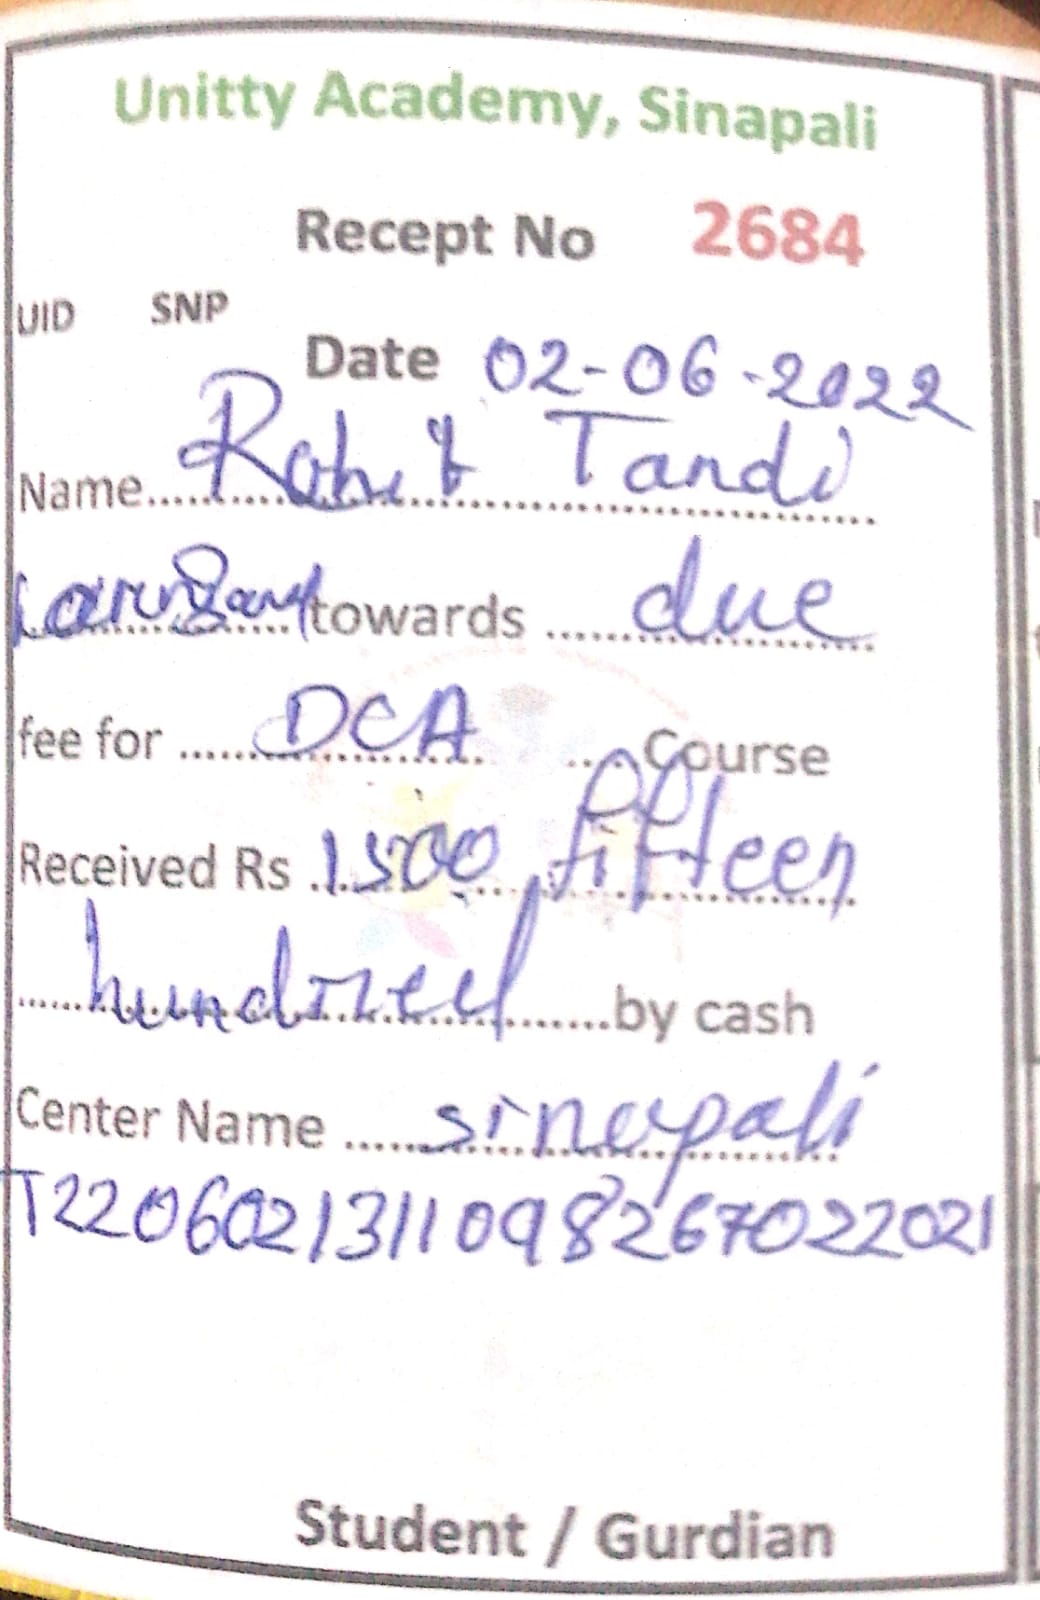 Unitty Academy, Sinapali
Recept No 2684
UID SNP
Date 02-06-2022
Name Rohit Tandi
towards due
fee for DCA Course
Received Rs 1500 fifteen
hundred by cash
Center Name sinapali
T2206021311098267022021
Student / Gurdian